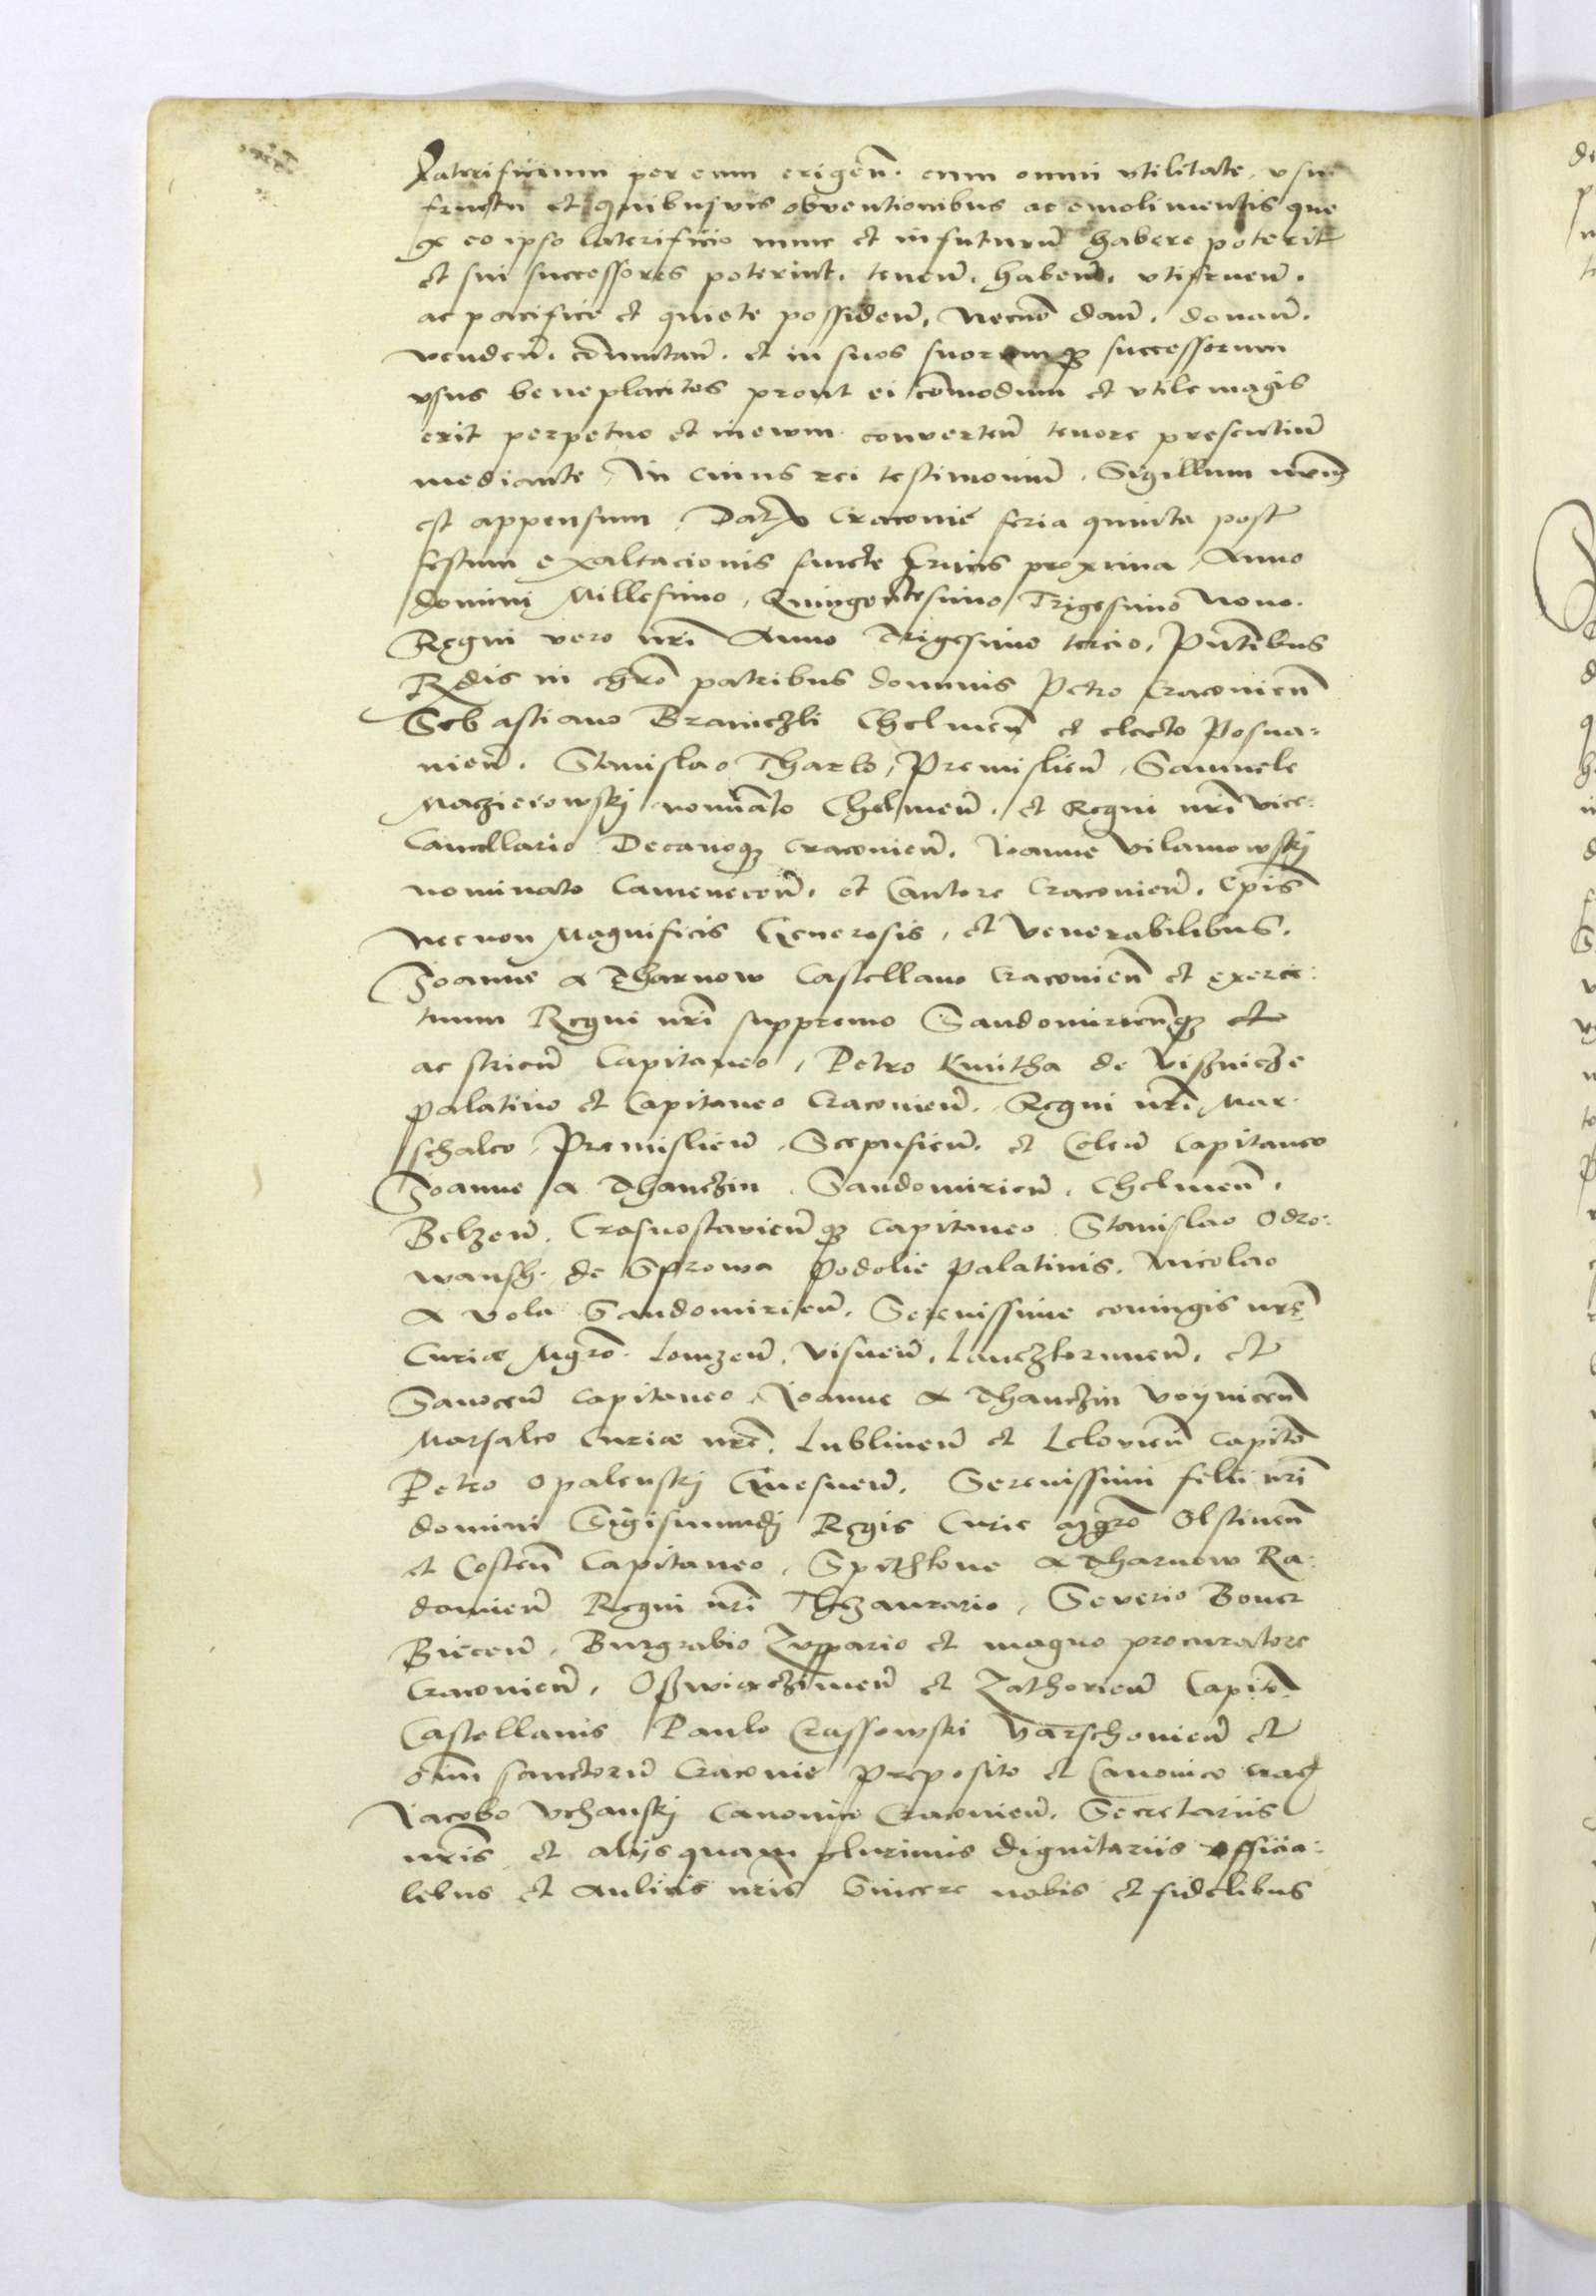 Laterificium per eum erigen̄. cum omni vtilitate, vsu
fructu et quibusvis obventionibus ac emolimentis que
ex eo ipso laterificio nunc et in futurū habere poterit
et sui successores poterint, tenen̄, haben̄, vtifruen̄,
ac pacifice et quiete possiden̄, necnō dan̄, donan̄,
venden̄, cōmutan̄, et in suos suorumq3 successorum
vsus beneplacitos prout ei cōmodum et vtile magis
erit perpetuo et in ewm converten̄ tenore presentiū
mediante, In cuius rei testimoniū, Sigillum nr̄m
est appensum, Dat̄ Cracouie feria quinta post
festum exaltacionis sancte Crucis proxima Anno
domini Millesimo, Quingentesimo Trigesimo Nono.
Regni vero nr̄i Anno Trigesimo tercio, Pn̄tibus
Rn̄dis in chr̄o patribus dominis Petro Cracouien̄
Sebastiano Braniczki Chelmen̄ et electo Posna-
nien̄. Stanislao Tharlo, Premislien̄, Samuele
Maczieiowskj nominato Chelmen̄, et Regni nr̄i vice-
Cancellario Decanoq3 Cracouien̄, Joanne Vilamowskj
nominato Camenecen̄, et Cantore Cracouien̄, Ep̄is
Necnon Magnificis Generosis, et Venerabilibus,
Joanne A Tharnow Castellano Cracouien̄ et exerci-
tuum Regni nr̄i suppremo Sandomirien̄q3
ac Strien̄ Capitaneo, Petro Kmitha de Visznicze
palatino et Capitaneo Cracouien̄, Regni nr̄i Mar-
schalco, Premislien̄, Scepusien̄, et Colen̄ Capitaneo
Joanne A Thanczin, Sandomirien̄, Chelmen̄,
Belzen̄, Crasnostavien̄q3 Capitaneo Stanislao Odro-
wansh de Sprowa Podolie palatinis, Nicolao
A Vola Sandomirien̄, Serenissime coniugis nr̄e
Curie Mgr̄o Lomzen̄, Visnen̄, Lanczkorunen̄, et
Sanocen̄ Capitaneo, Joanne A Thanczin Voynicen̄
Marsalco Curiæ nr̄e, Lublinen̄ et Lelouien̄ Capitō
Petro Opalenskj Gnesnen̄, Serenissimi filii nr̄i
domini Sigismundj Regis Curie Mgr̄o Olstinen̄
et Costen̄ Capitaneo, Spithkone A Tharnow Ra-
domien̄ Regni nr̄i Thezaurario, Severio Boner
Biecen̄, Burgrabio Zuppario et magno procuratore
Cracouien̄, Oszwiaczimen̄ et Zathorien̄ Capitō
Castellanis Paulo Crassowski Varschouien̄ et
oīm sanctorū Cracouie preposito et Canonico Crac̄
Jacobo Vchanskj Canonico Cracouien̄, Secretariis
nr̄is et alijs quam plurimis dignitariis officia-
libus et aulicis nr̄is Sincere nobis et fidelibus